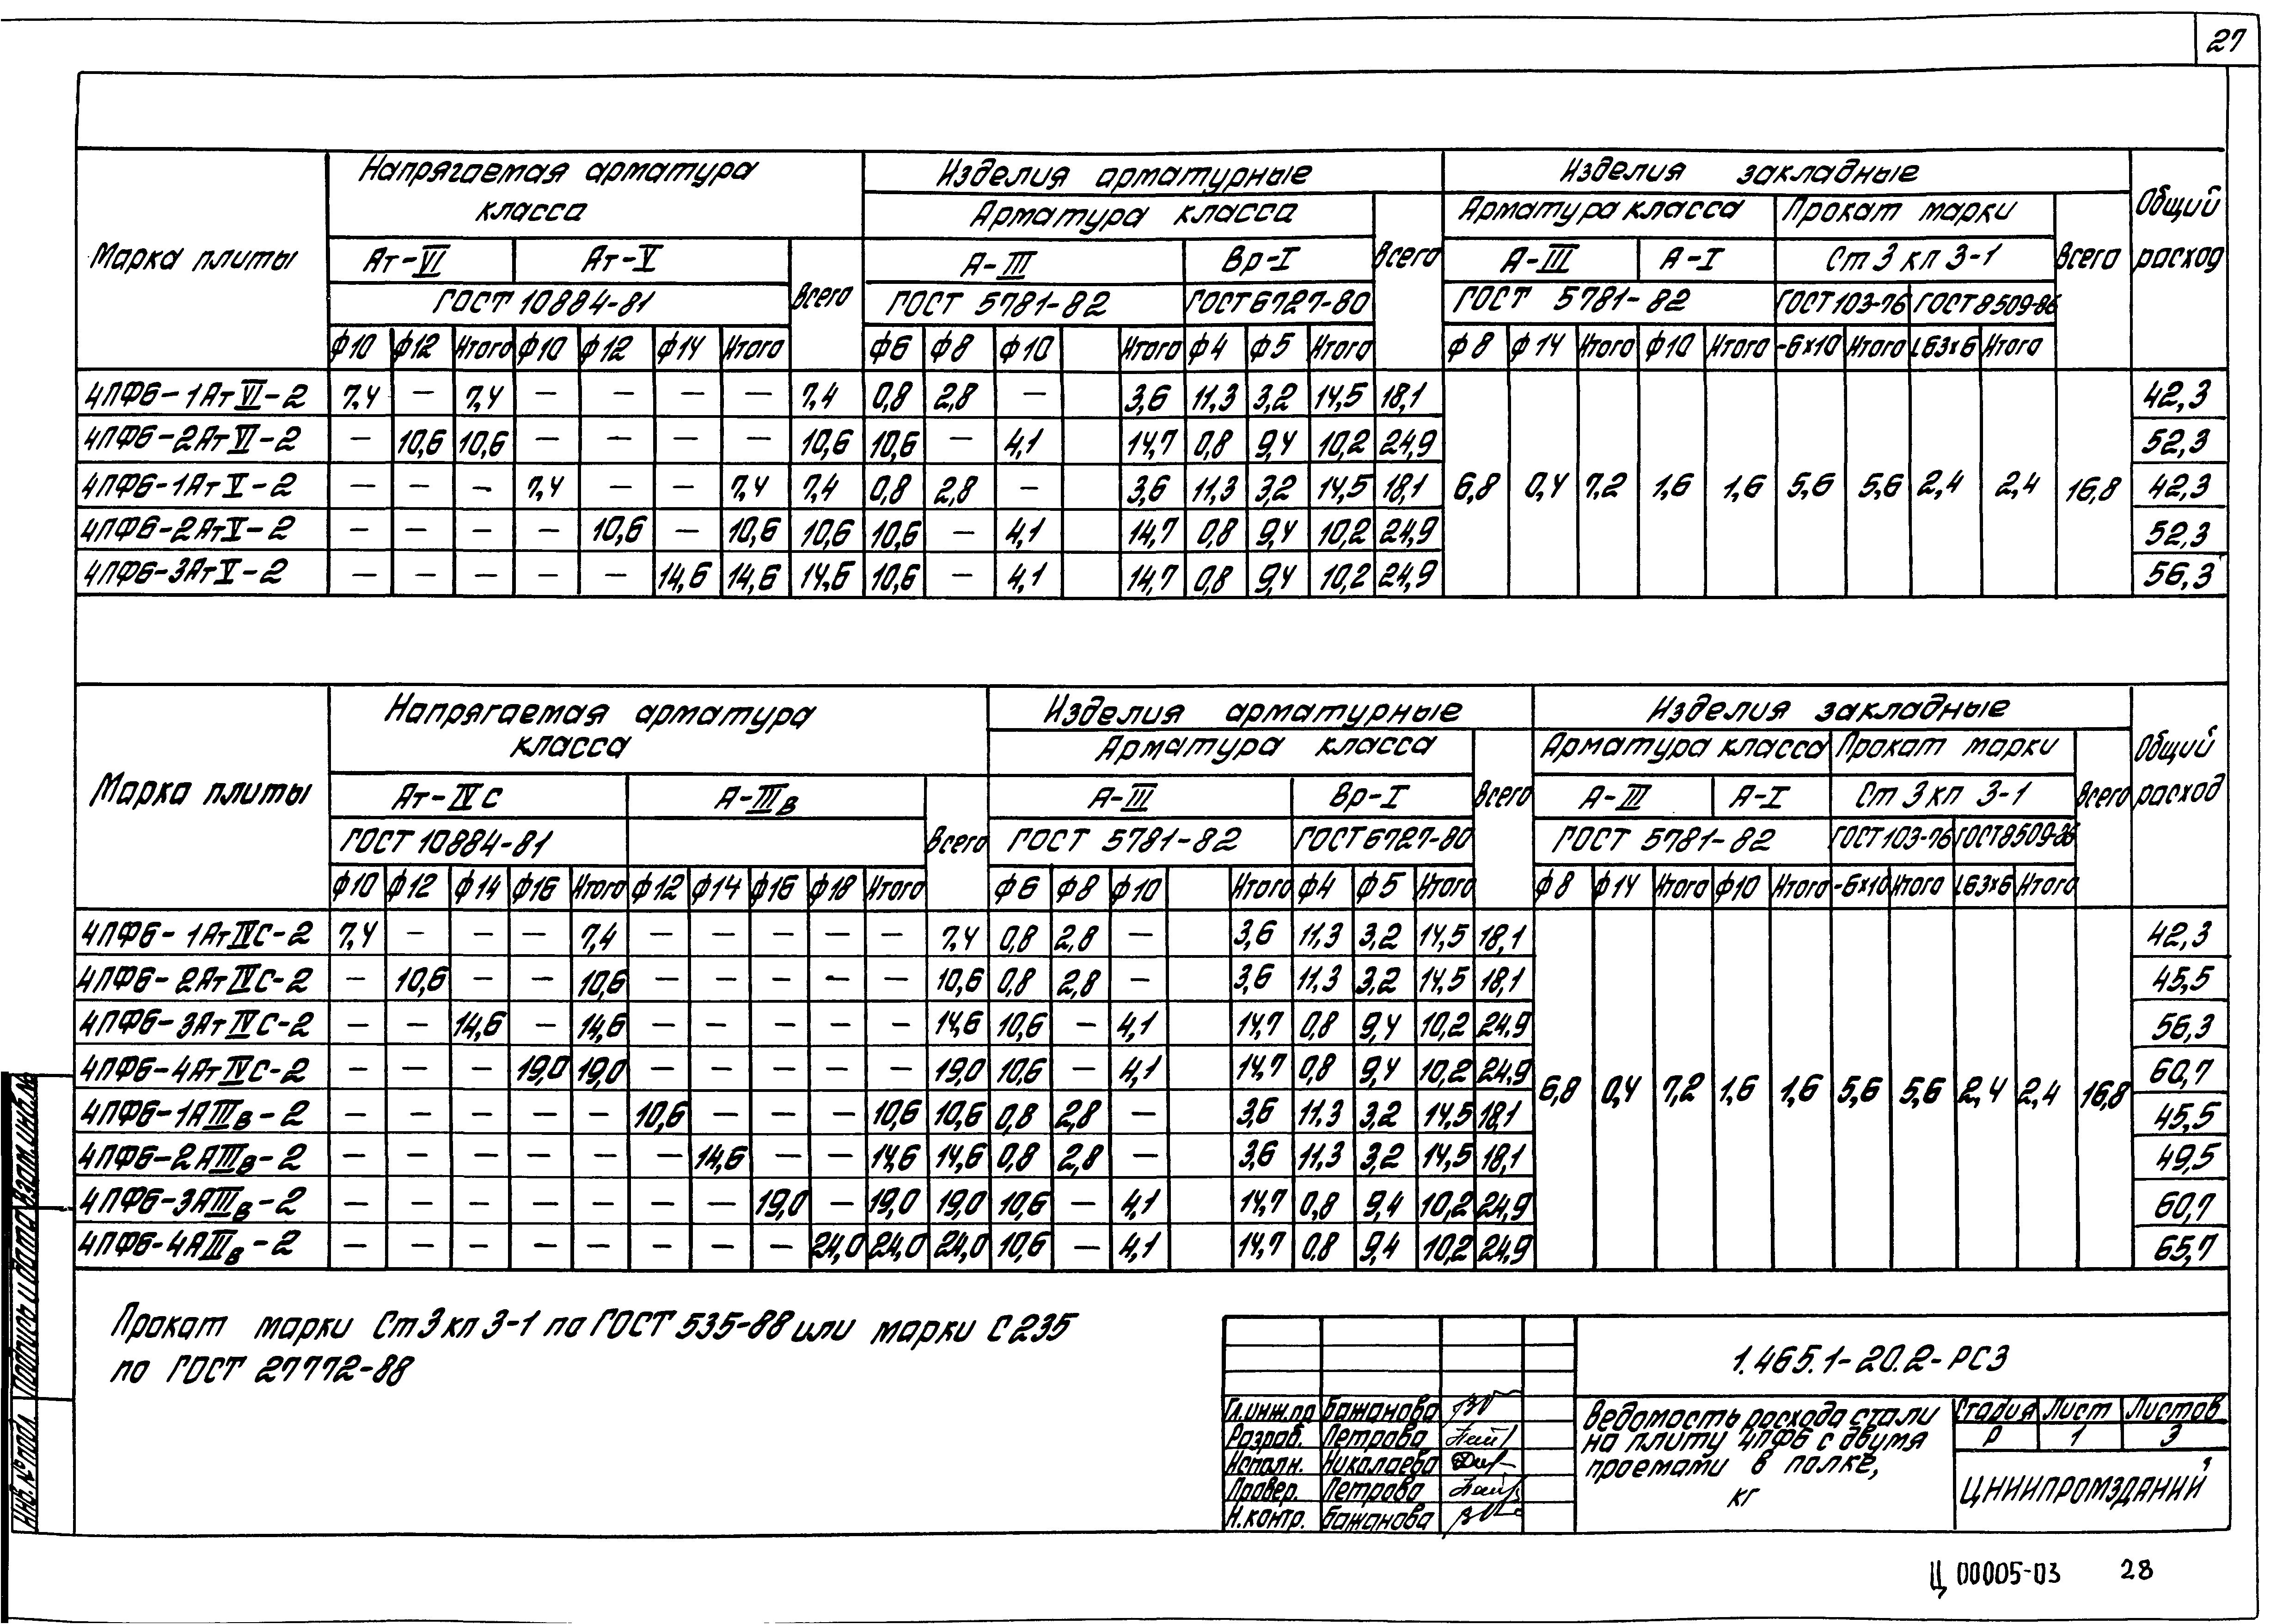 27
Марка плиты | Напрягаемая арматура класса | Изделия арматурные | Изделия закладные | Общий расход
Арматура класса | Всего | Арматура класса | Прокат марки | Всего
Ат-VI | Ат-V | Всего | А-III | Вр-I | А-III | А-I | Ст 3 кп 3-1
ГОСТ 10884-81 | ГОСТ 5781-82 | ГОСТ 6727-80 | ГОСТ 5781-82 | ГОСТ 103-76 | ГОСТ 8509-86
ф10 | ф12 | Итого | ф10 | ф12 | ф14 | Итого | ф6 | ф8 | ф10 | Итого | ф4 | ф5 | Итого | ф8 | ф14 | Итого | ф10 | Итого | -6х10 | Итого | L63х6 | Итого
4ПФ6-1АтVI-2 | 7,4 | — | 7,4 | — | — | — | — | 7,4 | 0,8 | 2,8 | — | 3,6 | 11,3 | 3,2 | 14,5 | 18,1 | 42,3
4ПФ6-2АтVI-2 | — | 10,6 | 10,6 | — | — | — | — | 10,6 | 10,6 | — | 4,1 | 14,7 | 0,8 | 9,4 | 10,2 | 24,9 | 52,3
4ПФ6-1АтV-2 | — | — | — | 7,4 | — | — | 7,4 | 7,4 | 0,8 | 2,8 | — | 3,6 | 11,3 | 3,2 | 14,5 | 18,1 | 6,8 | 0,4 | 7,2 | 1,6 | 1,6 | 5,6 | 5,6 | 2,4 | 2,4 | 16,8 | 42,3
4ПФ6-2АтV-2 | — | — | — | — | 10,6 | — | 10,6 | 10,6 | 10,6 | — | 4,1 | 14,7 | 0,8 | 9,4 | 10,2 | 24,9 | 52,3
4ПФ6-3АтV-2 | — | — | — | — | — | 14,6 | 14,6 | 14,6 | 10,6 | — | 4,1 | 14,7 | 0,8 | 9,4 | 10,2 | 24,9 | 56,3
Марка плиты | Напрягаемая арматура класса | Изделия арматурные | Изделия закладные | Общий расход
Арматура класса | Всего | Арматура класса | Прокат марки | Всего
Ат-IVС | А-IIIв | Всего | А-III | Вр-I | А-III | А-I | Ст 3 кп 3-1
ГОСТ 10884-81 | ГОСТ 5781-82 | ГОСТ 6727-80 | ГОСТ 5781-82 | ГОСТ 103-76 | ГОСТ 8509-86
ф10 | ф12 | ф14 | ф16 | Итого | ф12 | ф14 | ф16 | ф18 | Итого | ф6 | ф8 | ф10 | Итого | ф4 | ф5 | Итого | ф8 | ф14 | Итого | ф10 | Итого | -6х10 | Итого | L63х6 | Итого
4ПФ6-1АтIVС-2 | 7,4 | — | — | — | 7,4 | — | — | — | — | — | 7,4 | 0,8 | 2,8 | — | 3,6 | 11,3 | 3,2 | 14,5 | 18,1 | 42,3
4ПФ6-2АтIVС-2 | — | 10,6 | — | — | 10,6 | — | — | — | — | — | 10,6 | 0,8 | 2,8 | — | 3,6 | 11,3 | 3,2 | 14,5 | 18,1 | 45,5
4ПФ6-3АтIVС-2 | — | — | 14,6 | — | 14,6 | — | — | — | — | — | 14,6 | 10,6 | — | 4,1 | 14,7 | 0,8 | 9,4 | 10,2 | 24,9 | 56,3
4ПФ6-4АтIVС-2 | — | — | — | 19,0 | 19,0 | — | — | — | — | — | 19,0 | 10,6 | — | 4,1 | 14,7 | 0,8 | 9,4 | 10,2 | 24,9 | 60,7
4ПФ6-1АIIIв-2 | — | — | — | — | — | 10,6 | — | — | — | 10,6 | 10,6 | 0,8 | 2,8 | — | 3,6 | 11,3 | 3,2 | 14,5 | 18,1 | 6,8 | 0,4 | 7,2 | 1,6 | 1,6 | 5,6 | 5,6 | 2,4 | 2,4 | 16,8 | 45,5
4ПФ6-2АIIIв-2 | — | — | — | — | — | — | 14,6 | — | — | 14,6 | 14,6 | 0,8 | 2,8 | — | 3,6 | 11,3 | 3,2 | 14,5 | 18,1 | 49,5
4ПФ6-3АIIIв-2 | — | — | — | — | — | — | — | 19,0 | — | 19,0 | 19,0 | 10,6 | — | 4,1 | 14,7 | 0,8 | 9,4 | 10,2 | 24,9 | 60,7
4ПФ6-4АIIIв-2 | — | — | — | — | — | — | — | — | 24,0 | 24,0 | 24,0 | 10,6 | — | 4,1 | 14,7 | 0,8 | 9,4 | 10,2 | 24,9 | 65,7
Прокат марки Ст3кп3-1 по ГОСТ 535-88 или марки С235
по ГОСТ 27772-88
Инв.№ подл. | Подпись и дата | Взам.инв.№
1.465.1-20.2-РС3
Гл.инж.пр | Бажанова
Разраб. | Петрова
Исполн. | Николаева
Провер. | Петрова
Н.контр. | Бажанова
Ведомость расхода стали
на плиту 4ПФ6 с двумя
проемами в полке,
кг
Стадия | Лист | Листов
Р | 1 | 3
ЦНИИПРОМЗДАНИЙ
Ц 00005-03 28